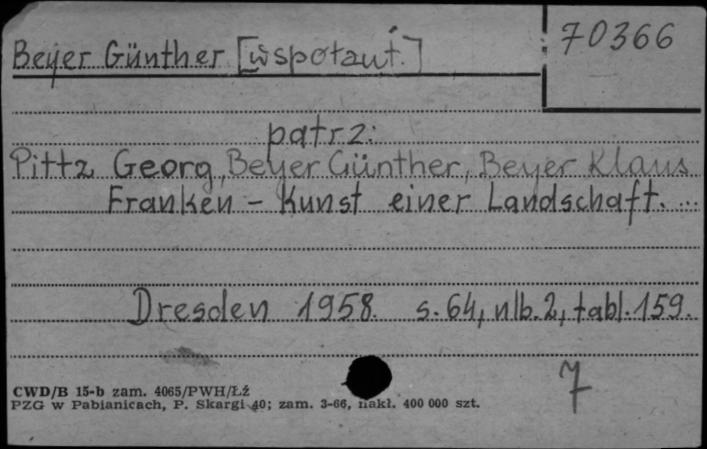 Beyer Günther [współaut.]
70366
patrz:
Piltz Georg, Beyer Günther, Beyer Klaus
Franken - Kunst einer Landschaft. ...
Dresden 1958. s. 64, nlb. 2, tabl. 159.
7
CWD/B 15-b zam. 4065/PWH/Łź
PZG w Pabianicach, P. Skargi 40; zam. 3-66, nakł. 400 000 szt.